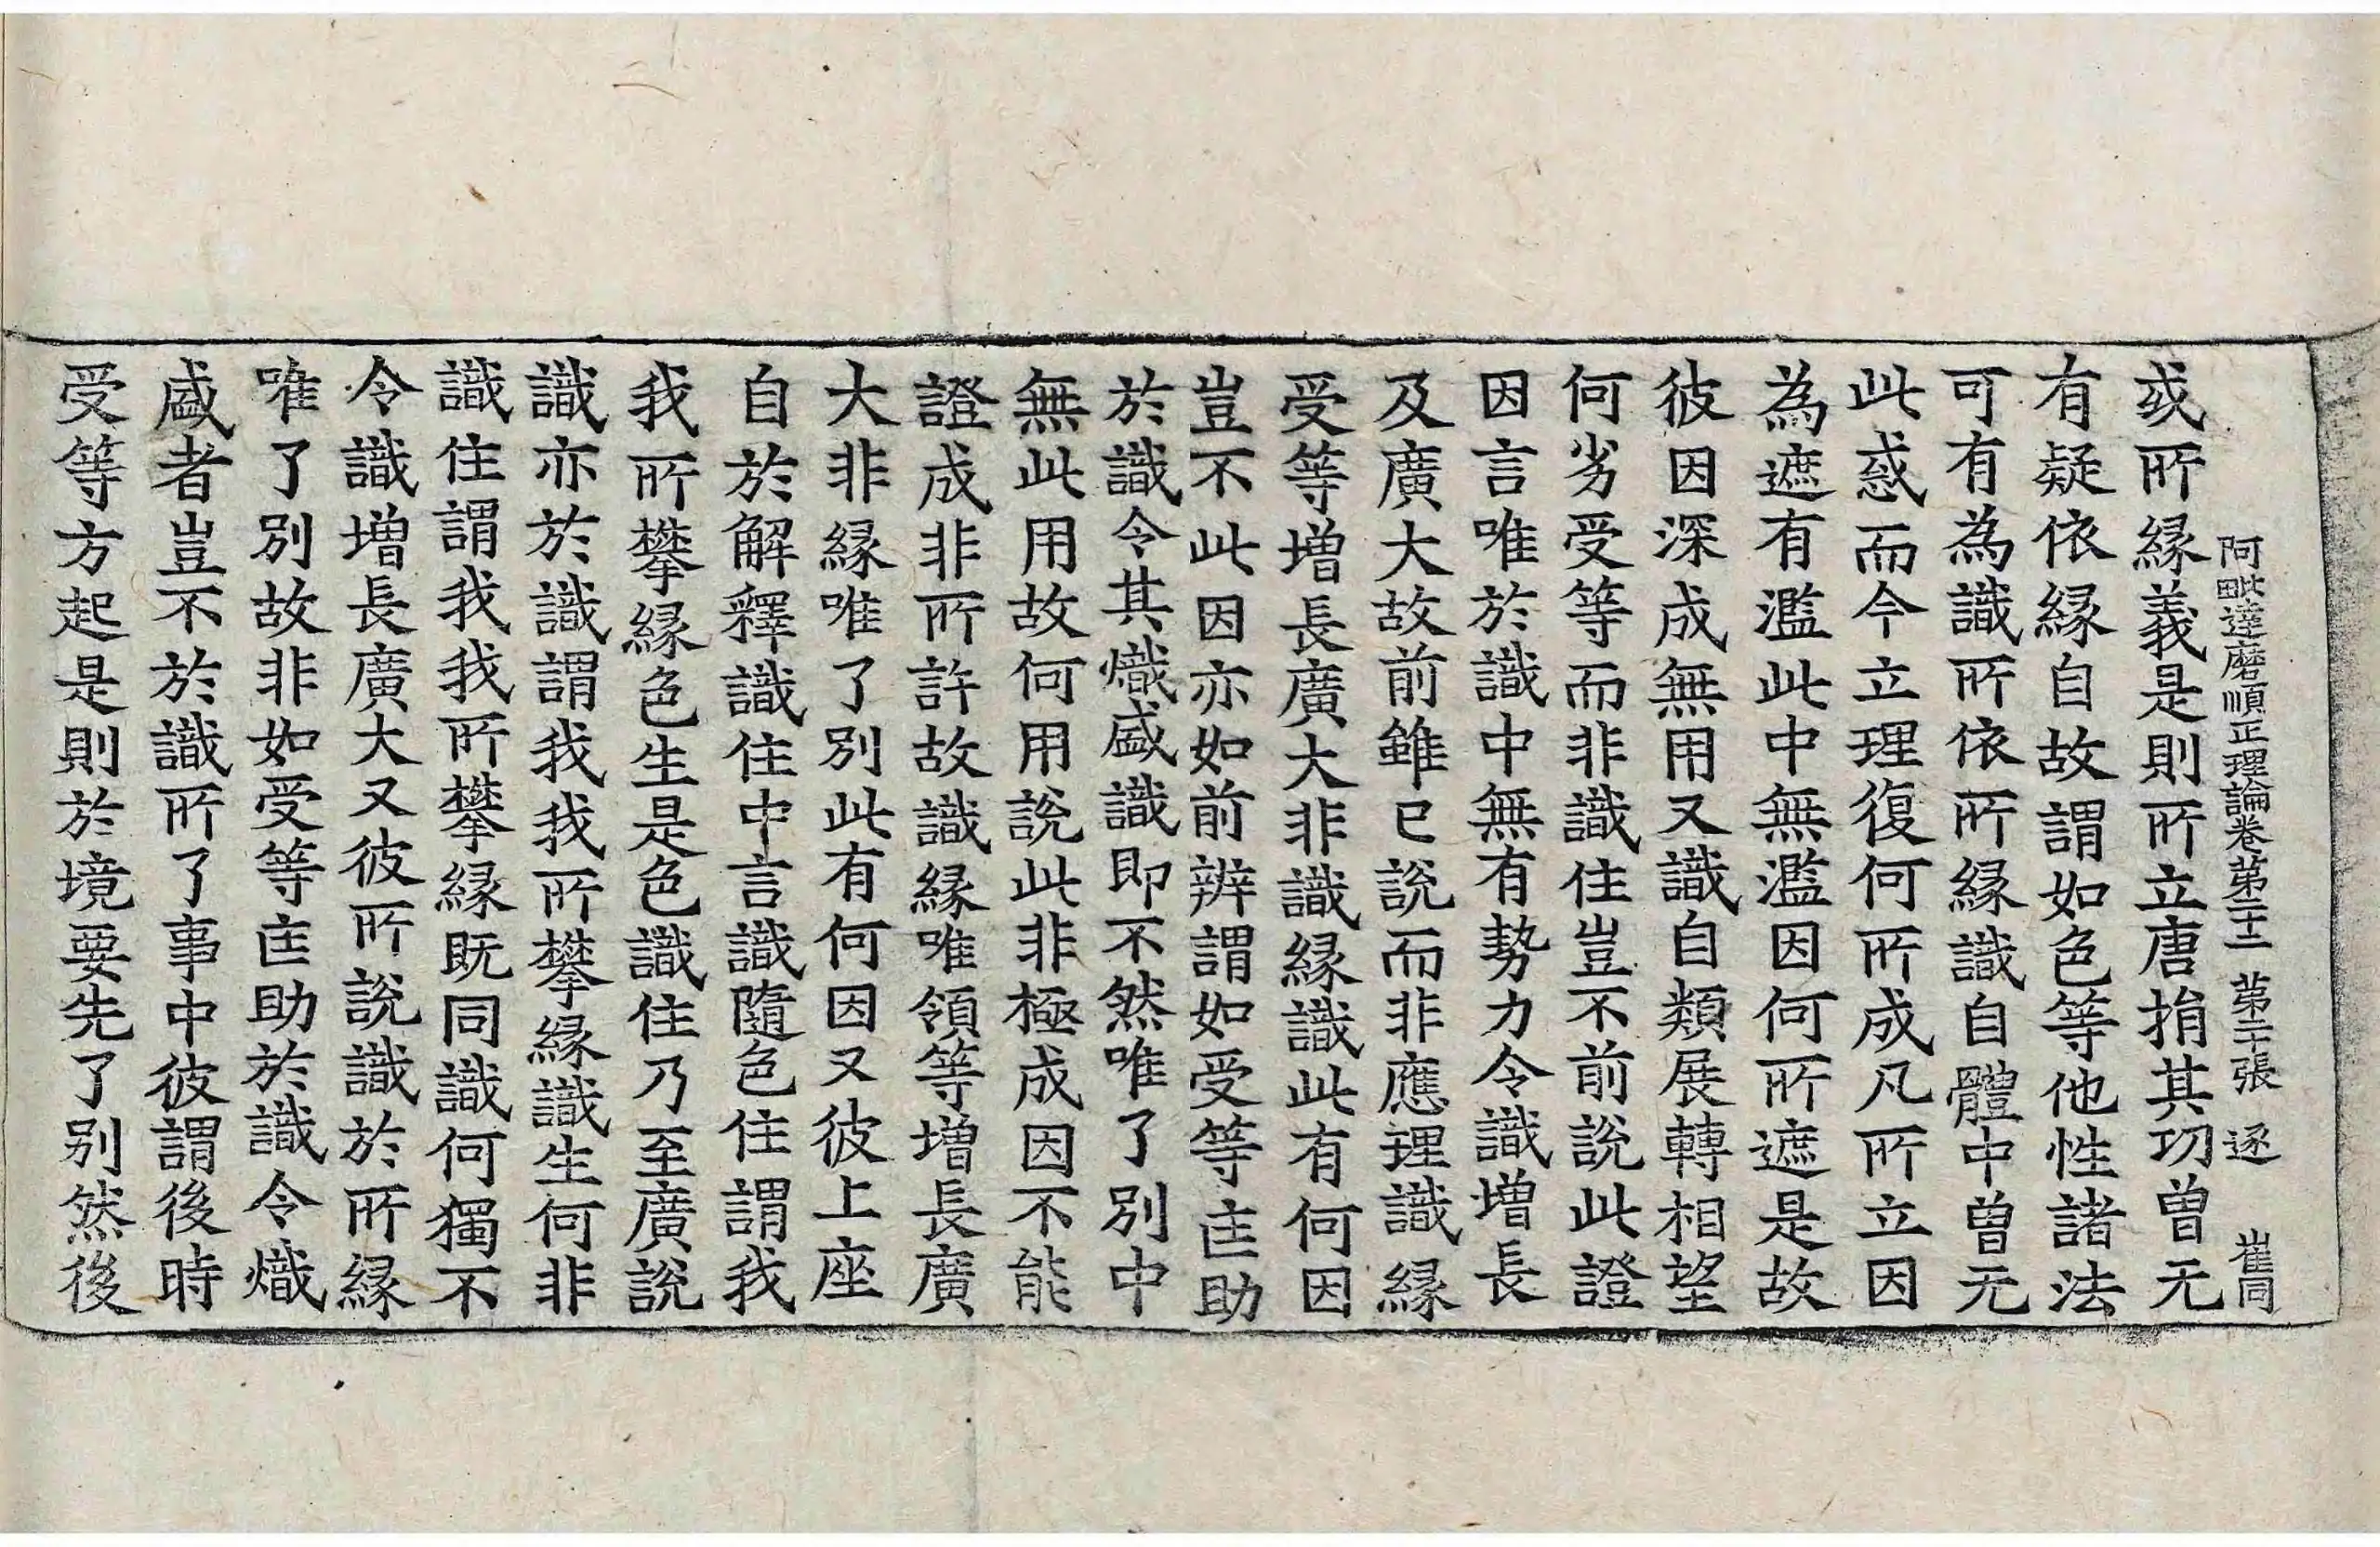 阿毗達磨順正理論卷第二十二 第二十張 逐 崔同
或所緣義是則所立唐捐其功曾无
有疑依緣自故謂如色等他性諸法
可有為識所依所緣識自體中曾无
此惑而今立理復何所成凡所立因
為遮有濫此中無濫因何所遮是故
彼因深成無用又識自類展轉相望
何劣受等而非識住豈不前說此證
因言唯於識中無有勢力令識增長
及廣大故前雖已說而非應理識緣
受等增長廣大非識緣識此有何因
豈不此因亦如前辨謂如受等匡助
於識令其熾盛識即不然唯了別中
無此用故何用說此非極成因不能
證成非所許故識緣唯領等增長廣
大非緣唯了別此有何因又彼上座
自於解釋識住中言識隨色住謂我
我所攀緣色生是色識住乃至廣說
識亦於識謂我我所攀緣識生何非
識住謂我我所攀緣既同識何獨不
令識增長廣大又彼所說識於所緣
唯了別故非如受等匡助於識令熾
盛者豈不於識所了事中彼謂後時
受等方起是則於境要先了別然後